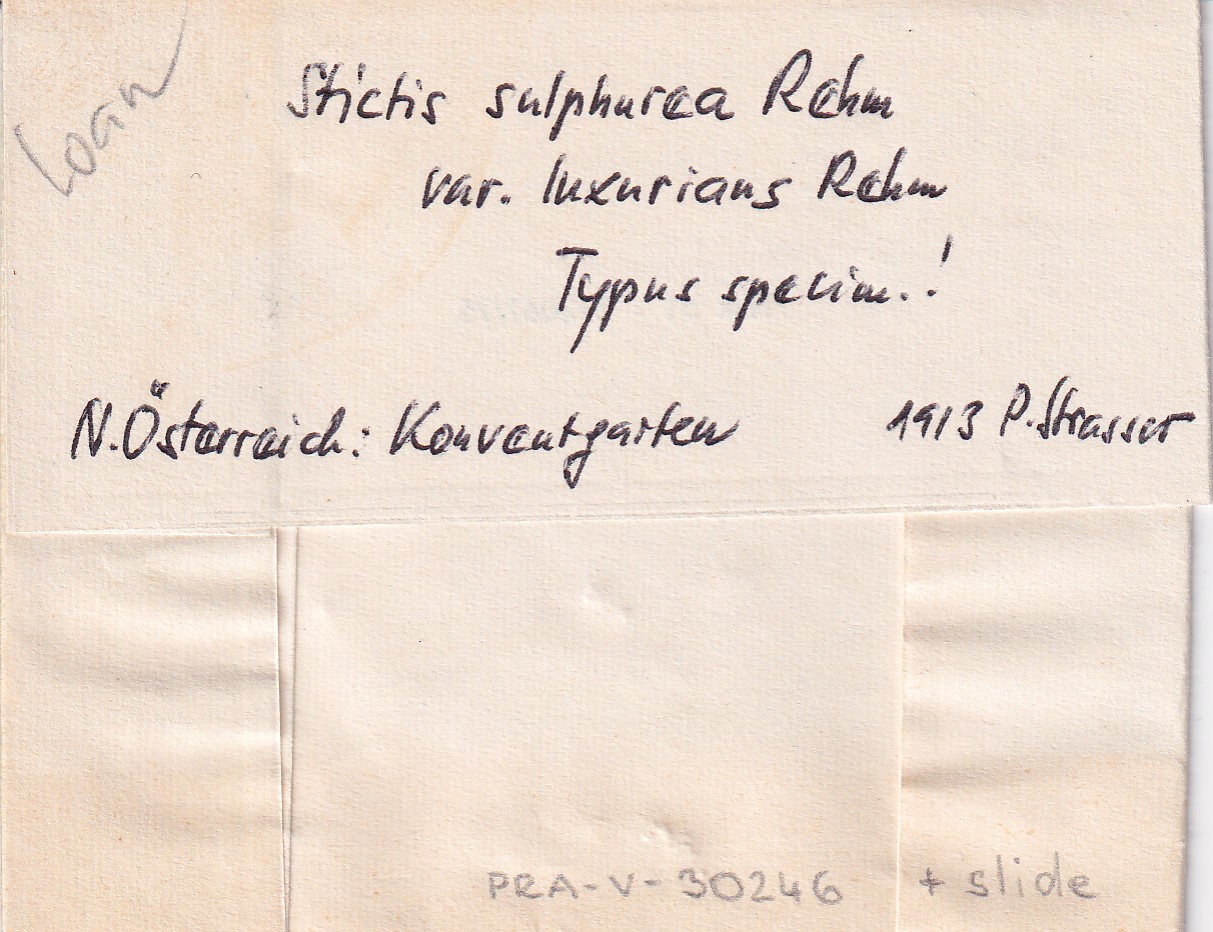 Loan
Stictis sulphurea Rehm
var. luxurians Rehm
Typus specim.!
N.Österreich: Konventgarten 1913 P. Strasser
PRA-V-30246 + slide